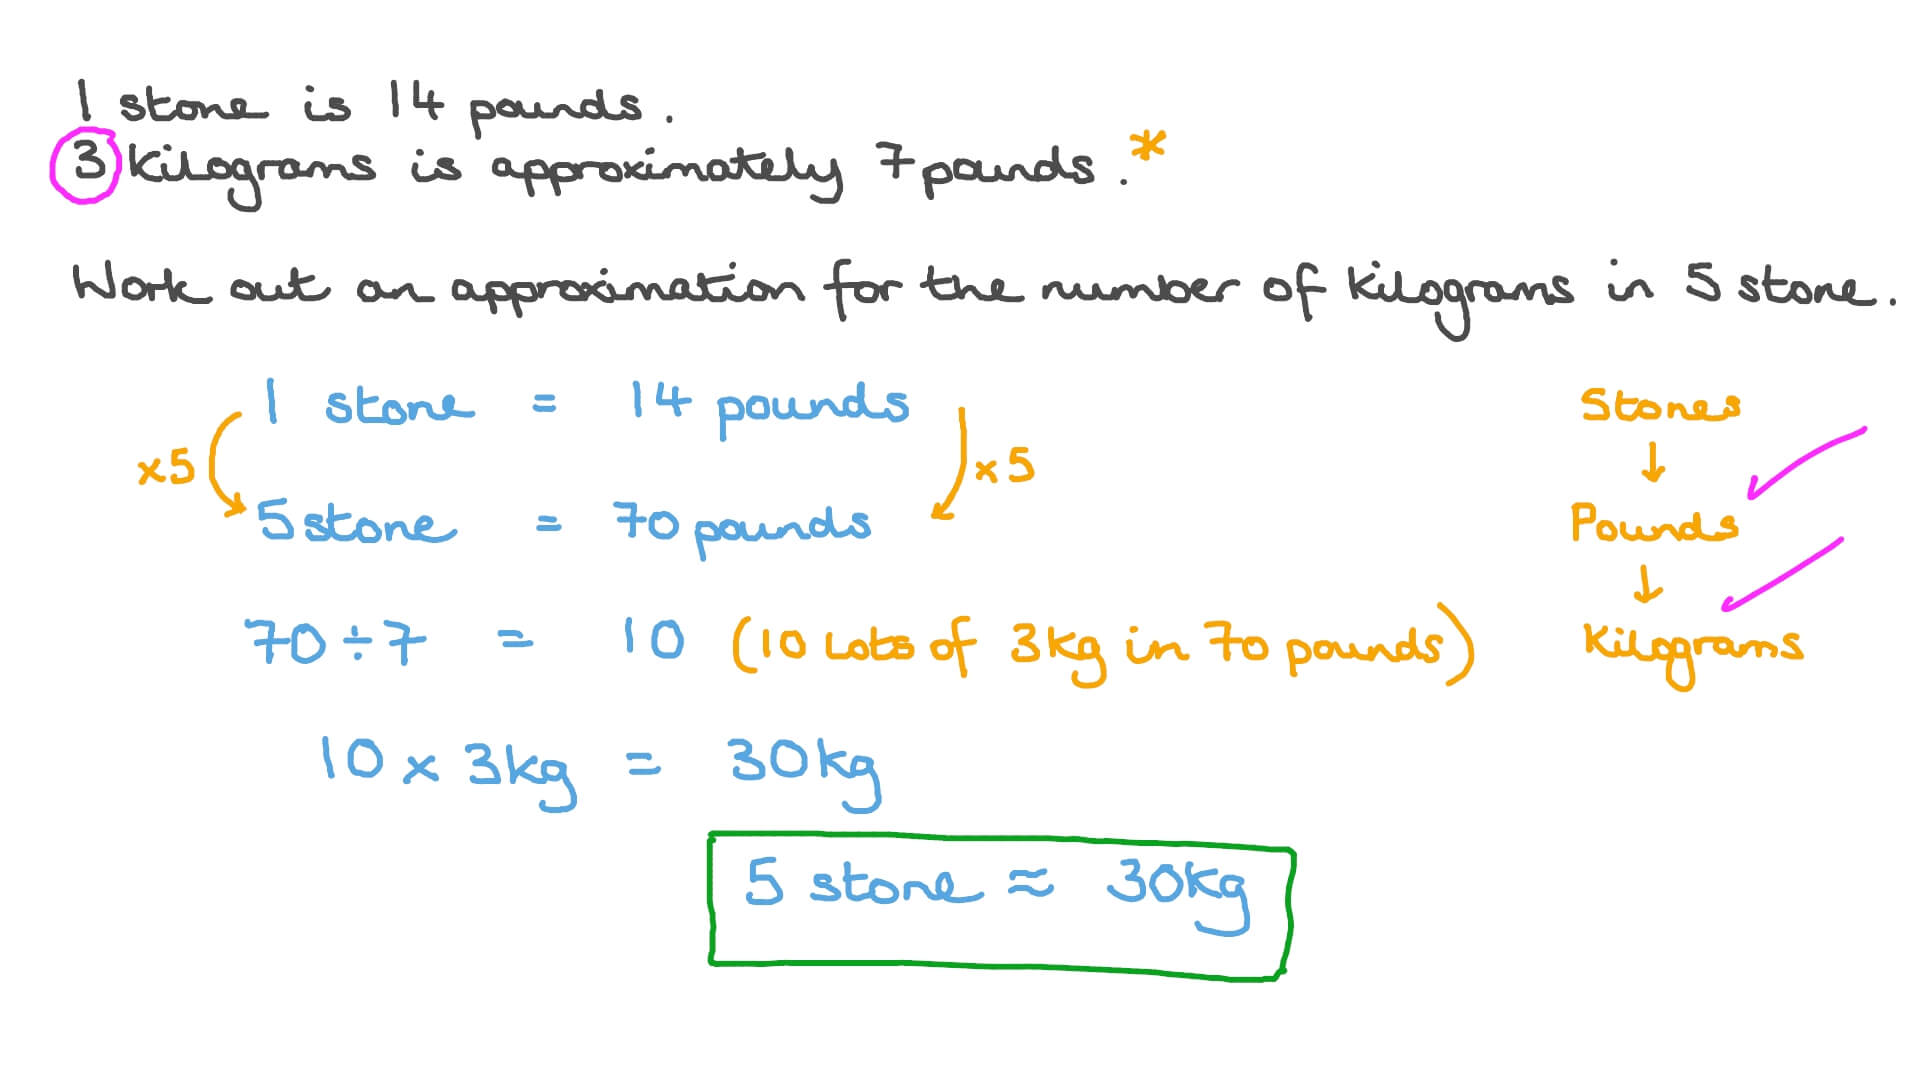 1 stone is 14 pounds.
3 kilograms is approximately 7 pounds.*
Work out an approximation for the number of kilograms in 5 stone.
1 stone = 14 pounds
x5 x5
5 stone = 70 pounds
70 ÷ 7 = 10 (10 Lots of 3kg in 70 pounds)
10 x 3kg = 30kg
5 stone ≈ 30kg
Stones
↓
Pounds
↓
Kilograms